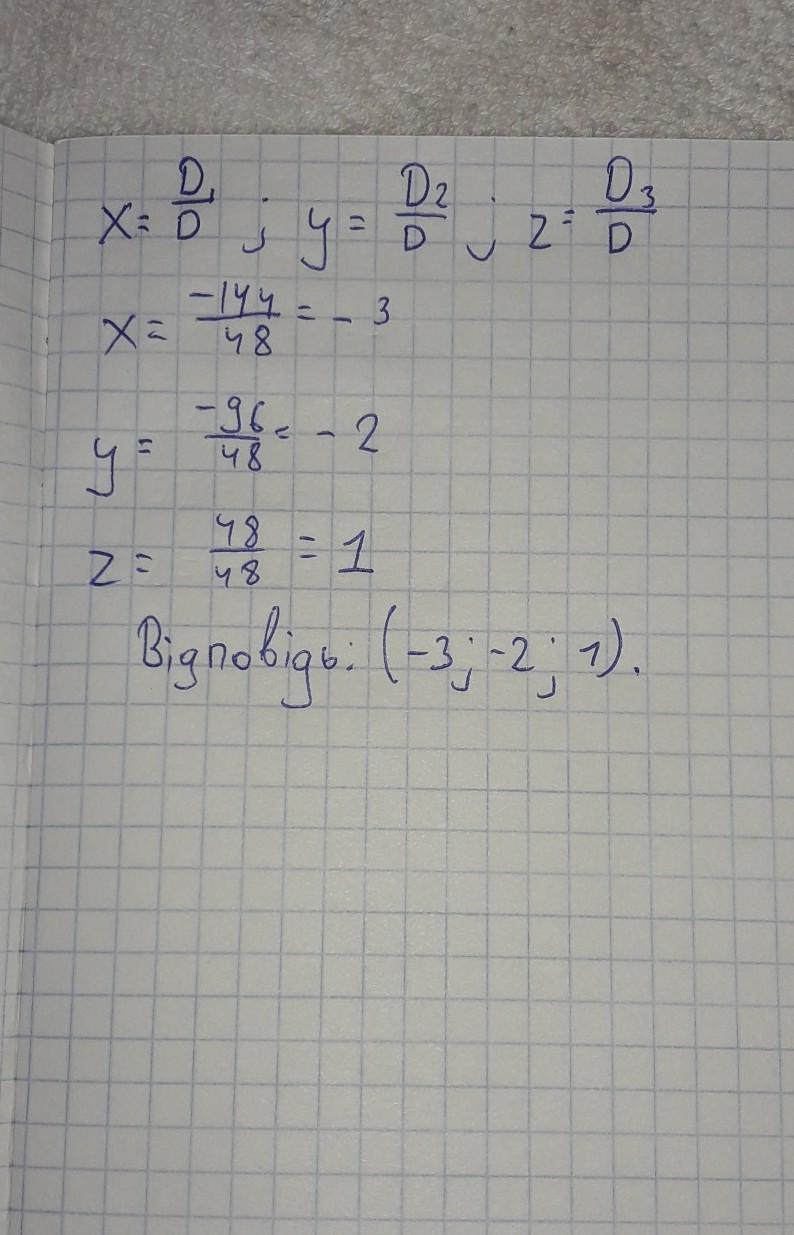 x = D₁/D ; y = D₂/D ; z = D₃/D
x = -144/48 = - 3
y = -96/48 = - 2
z = 48/48 = 1
Відповідь: (-3; -2; 1).